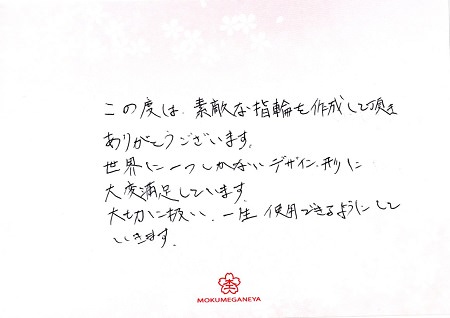 この度は、素敵な指輪を作成して頂き
ありがとうございます。
世界に一つしかないデザイン、形に
大変満足しています。
大切に扱い、一生使用できるようにして
いきます。
MOKUMEGANEYA